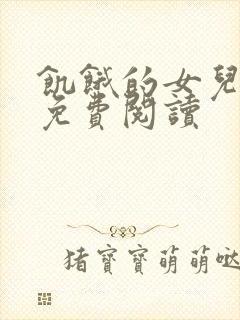 飢餓的女兒
免費閱讀
猪寶寶萌萌哒